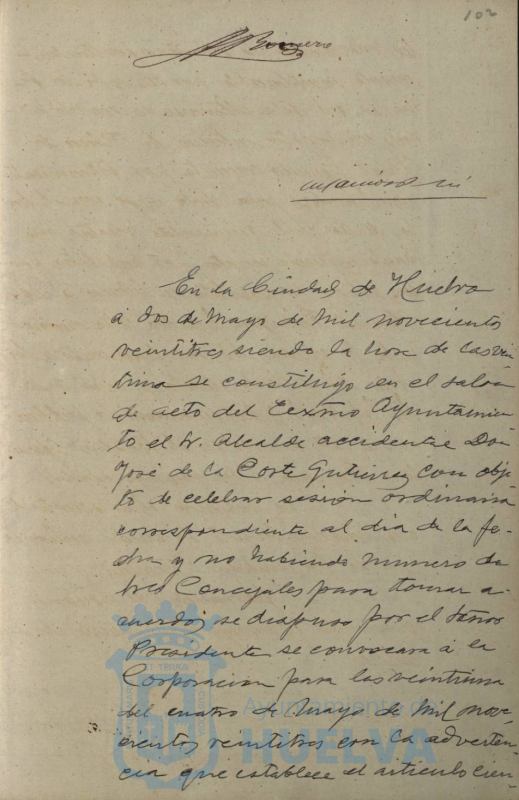 102
Romero
En la Ciudad de Huelva
á dos de Mayo de Mil novecientos
veintitres siendo la hora de las vein
tiuna se constituyó en el salon
de acto del Excmo Ayuntamien-
to el Sr. Alcalde accidental Don
José de la Corte Gutierrez con obje-
to de celebrar sesión ordinaria
correspondiente al dia de la fe-
cha y no habiendo numero de
Sres Concejales para tomar a-
cuerdos, se dispuso por el Señor
Presidente se convocara á la
Corporacion para las veintiuna
del cuatro de Mayo de Mil nove-
cientos veintitres con la adverten-
cia que establece el articulo cien-
Ayuntamiento de
HUELVA